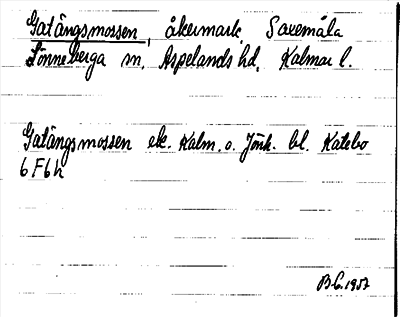 Gatängsmossen, åkermark, Saxemåla
Lönneberga sn, Aspelands hd, Kalmar l.
Gatängsmossen ek. Kalm. o. Jönk. bl. Katebo
6 F 6 h
B.C. 1957